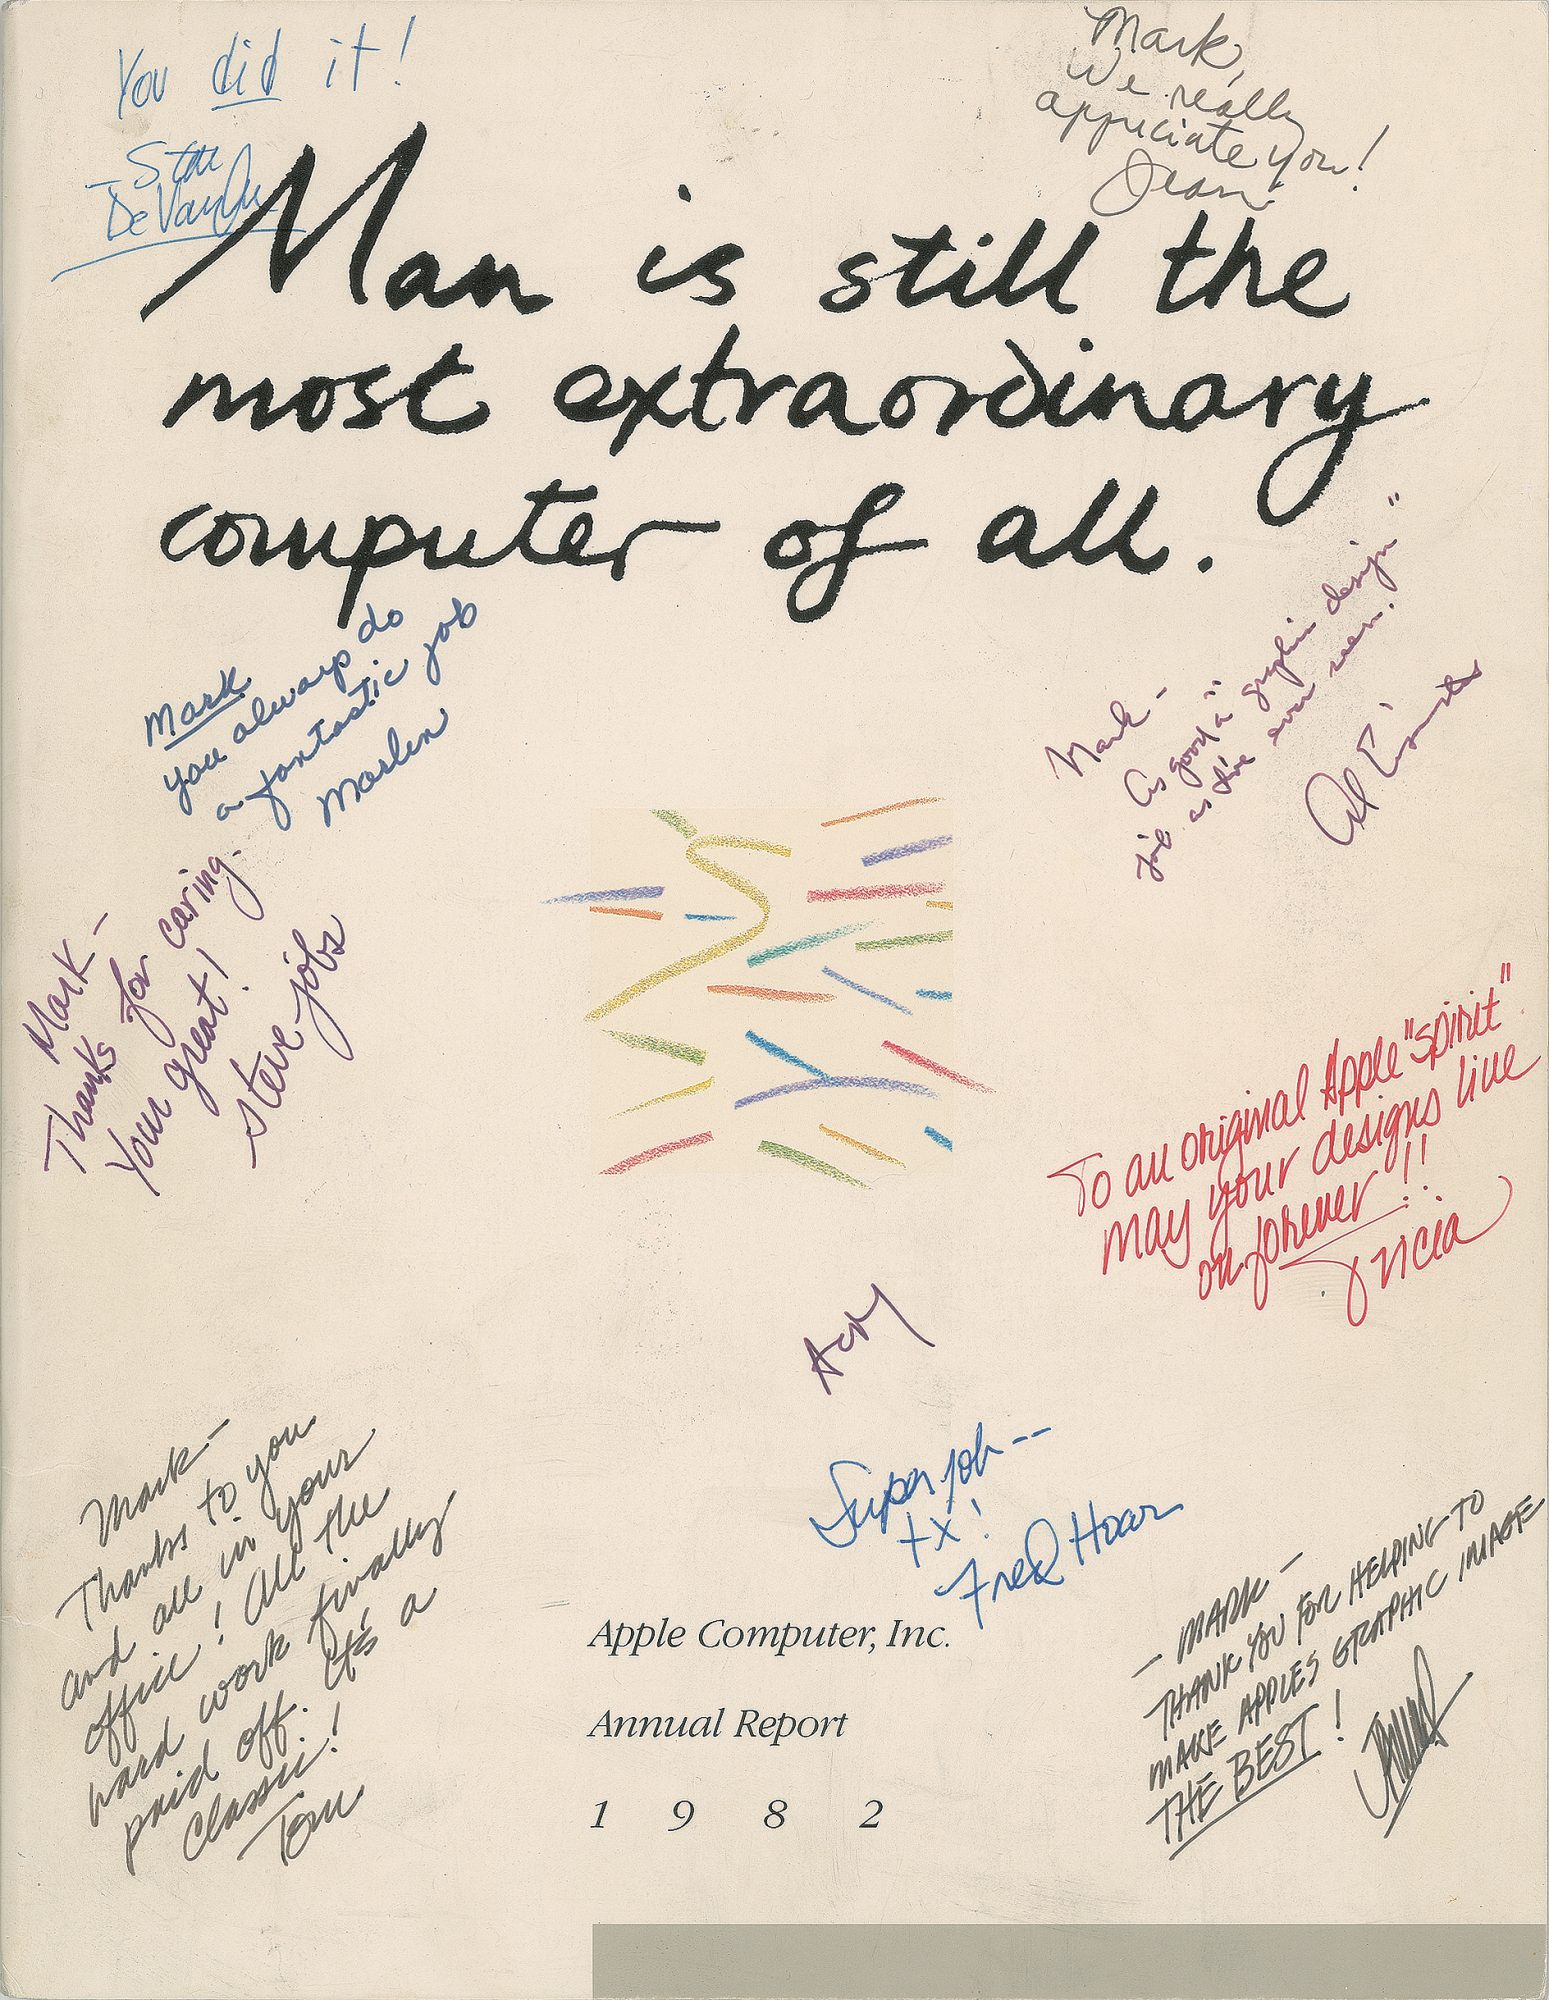 You did it!
- Stan
DeVaughn
Mark,
We really
appriciate you!
Jean
Man is still the
most extraordinary
computer of all.
Mark
you always do
a fantastic job
Marlen
Mark -
As good a "graphic design"
job as I've ever seen!
Al
Mark -
Thanks for caring.
Your great!
steve jobs
To an original Apple "spirit"
may your designs live
on forever!!
Tricia
Super job --
tx!
Fred Hoar
Mark -
Thanks to you
and all in your
office! All the
hard work finally
paid off. It's a
classic!
Tom
- MARK -
THANK YOU FOR HELPING TO
MAKE APPLES GRAPHIC IMAGE
THE BEST!
Apple Computer, Inc.
Annual Report
1 9 8 2